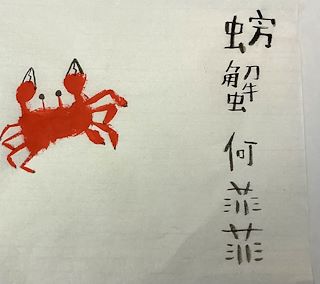 螃蟹何菲菲